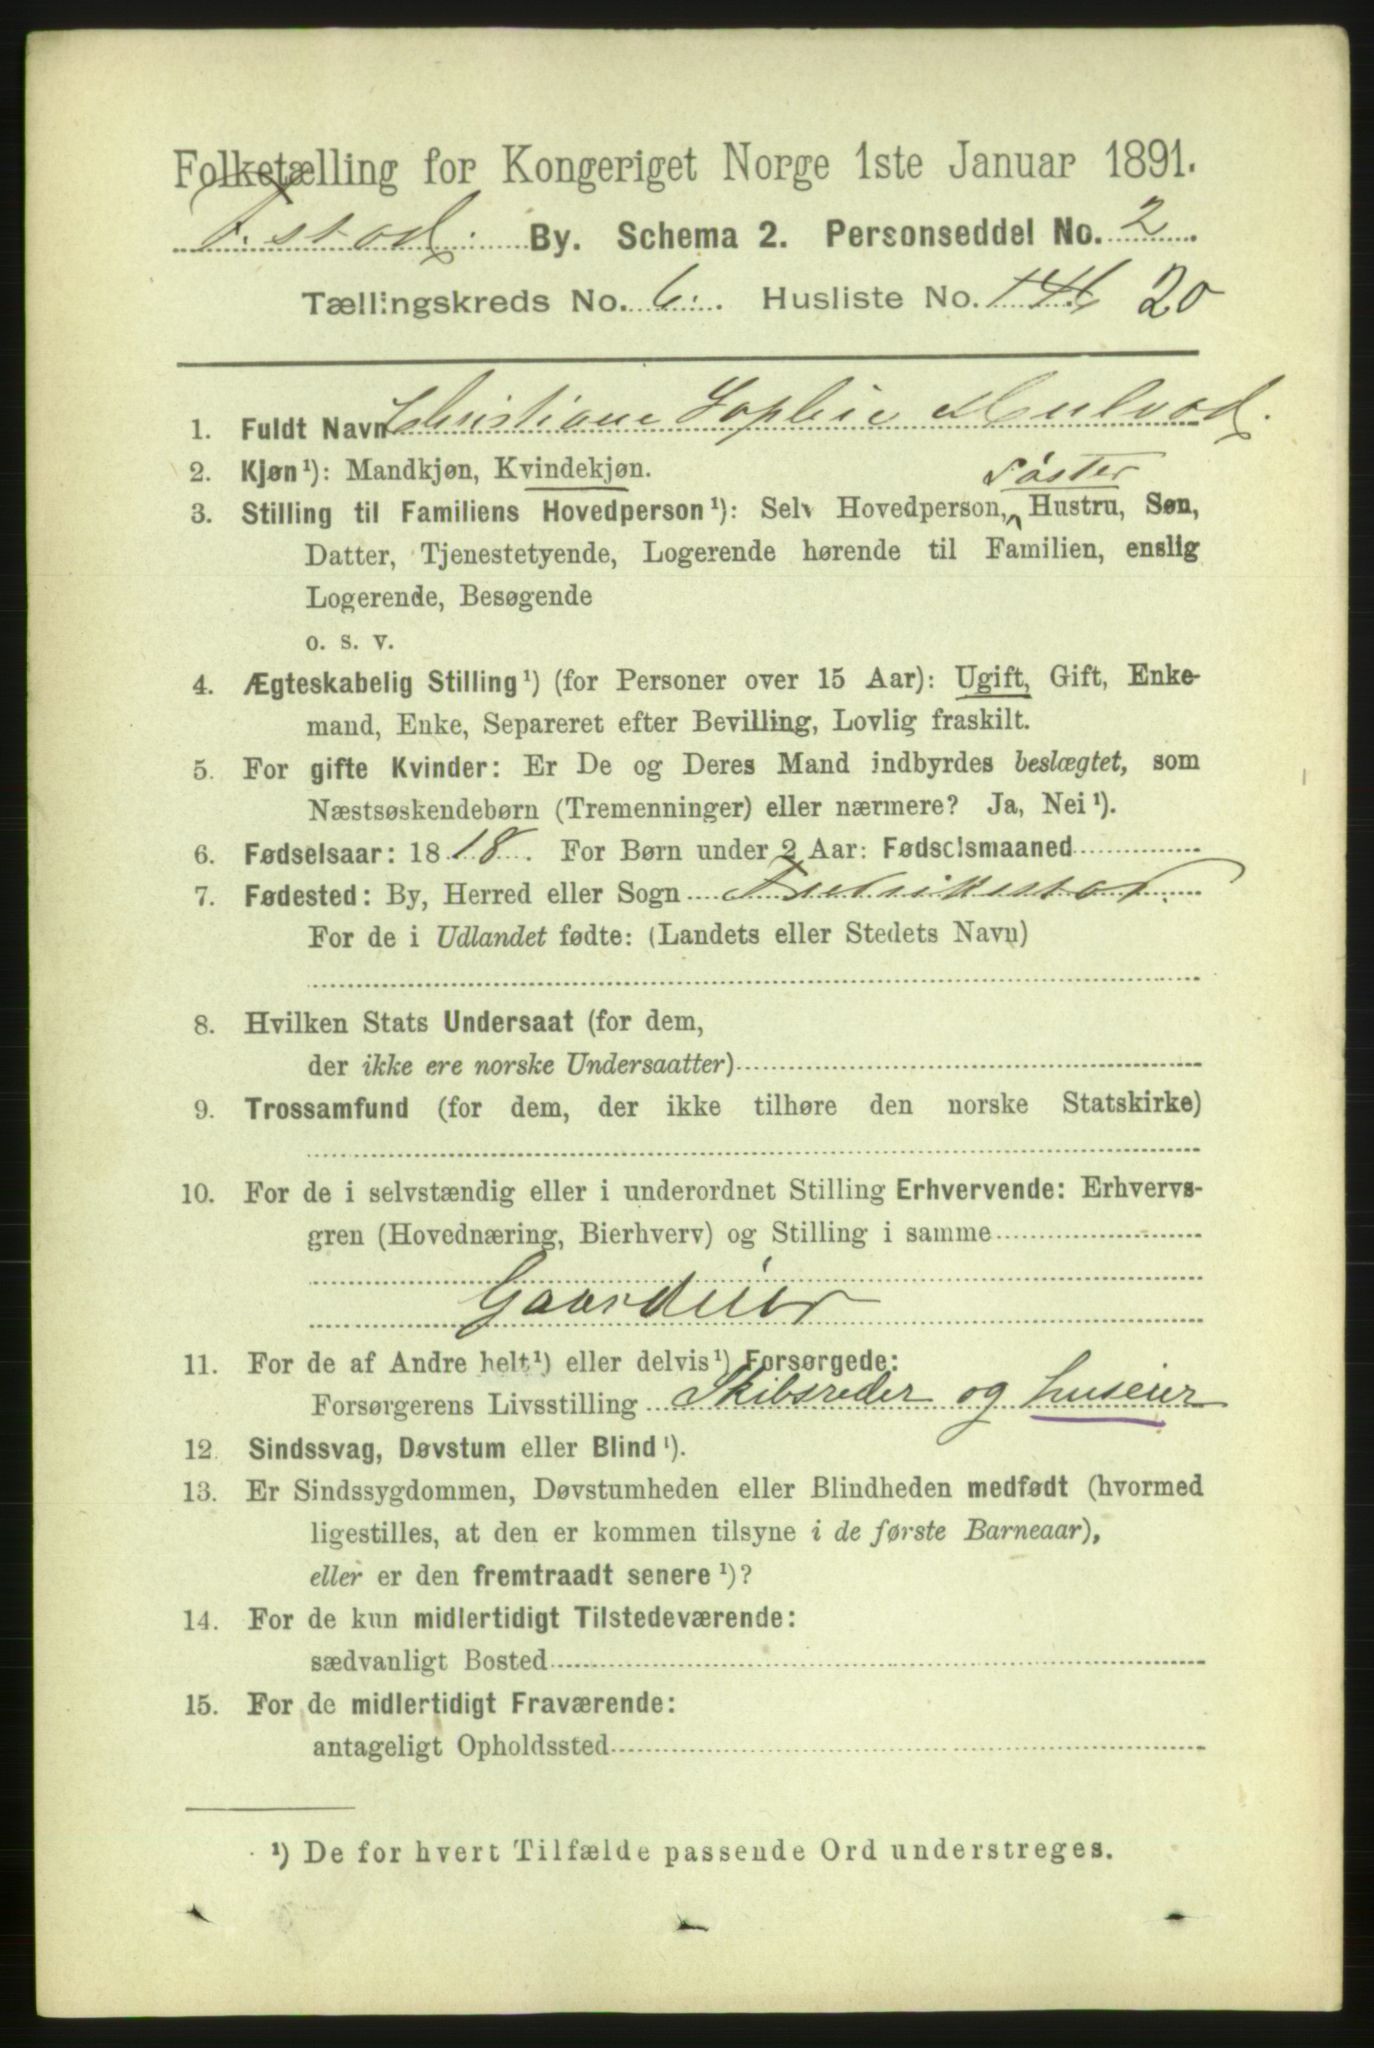 Folketælling for Kongeriget Norge 1ste Januar 1891.
F.stad. By. Schema 2. Personseddel No. 2
Tællingskreds No. 6. Husliste No. 20
1. Fuldt Navn Christiane Sophie Hulvad.
2. Kjøn¹): Mandkjøn, Kvindekjøn.
Søster
3. Stilling til Familiens Hovedperson¹): Selv Hovedperson, Hustru, Søn,
Datter, Tjenestetyende, Logerende hørende til Familien, enslig
Logerende, Besøgende
o. s. v.
4. Ægteskabelig Stilling¹) (for Personer over 15 Aar): Ugift, Gift, Enke-
mand, Enke, Separeret efter Bevilling, Lovlig fraskilt.
5. For gifte Kvinder: Er De og Deres Mand indbyrdes beslægtet, som
Næstsøskendebørn (Tremenninger) eller nærmere? Ja, Nei¹).
6. Fødselsaar: 1818. For Børn under 2 Aar: Fødselsmaaned
7. Fødested: By, Herred eller Sogn Fredrikstad.
For de i Udlandet fødte: (Landets eller Stedets Navn)
8. Hvilken Stats Undersaat (for dem,
der ikke ere norske Undersaatter)
9. Trossamfund (for dem, der ikke tilhøre den norske Statskirke)
10. For de i selvstændig eller i underordnet Stilling Erhvervende: Erhvervs-
gren (Hovednæring, Bierhverv) og Stilling i samme
Gaardeier
11. For de af Andre helt¹) eller delvis¹) Forsørgede:
Forsørgerens Livsstilling Skibsreder og huseier
12. Sindssvag, Døvstum eller Blind¹).
13. Er Sindssygdommen, Døvstumheden eller Blindheden medfødt (hvormed
ligestilles, at den er kommen tilsyne i de første Barneaar),
eller er den fremtraadt senere¹)?
14. For de kun midlertidigt Tilstedeværende:
sædvanligt Bosted
15. For de midlertidigt Fraværende:
antageligt Opholdssted
¹) De for hvert Tilfælde passende Ord understreges.